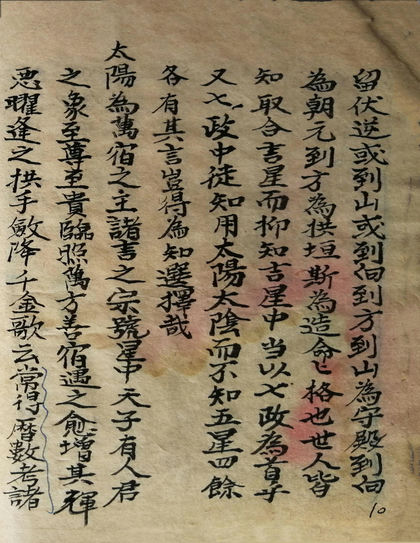 留伏逆或到山或到向到方到山為守殿到向
為朝元到方為拱垣斯為造命之格也世人皆
知取合吉星而抑知吉星中当以七政為首乎
又七政中徒知用太陽太陰而不知五星四餘
各有其言豈得為知選擇哉
太陽為萬宿之主諸吉之宗號星中天子有人君
之象至尊至貴臨照萬方善宿遇之愈增其輝
惡曜逢之拱手敛降千金歌云常得曆數考諸
10